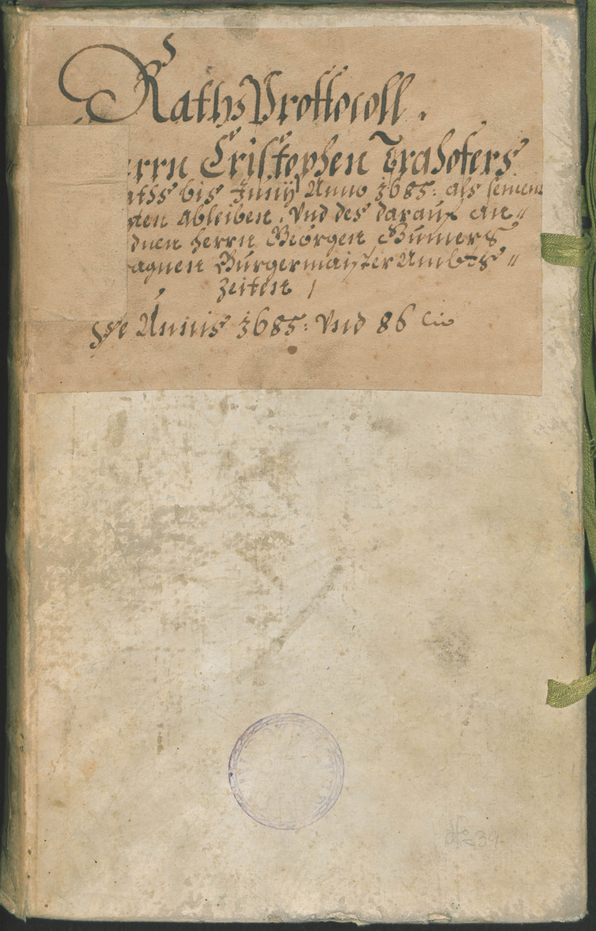 Raths Prottocoll.
rrn Cristophen Trahofers
aths bis Junÿ Anno 1685: als seinem
sten Ableiben, Vnd des darauf An„
Herrn Geörgen
Burgermaister Ambts„
Zeiten /
Annis 1685: Vnd 86
239